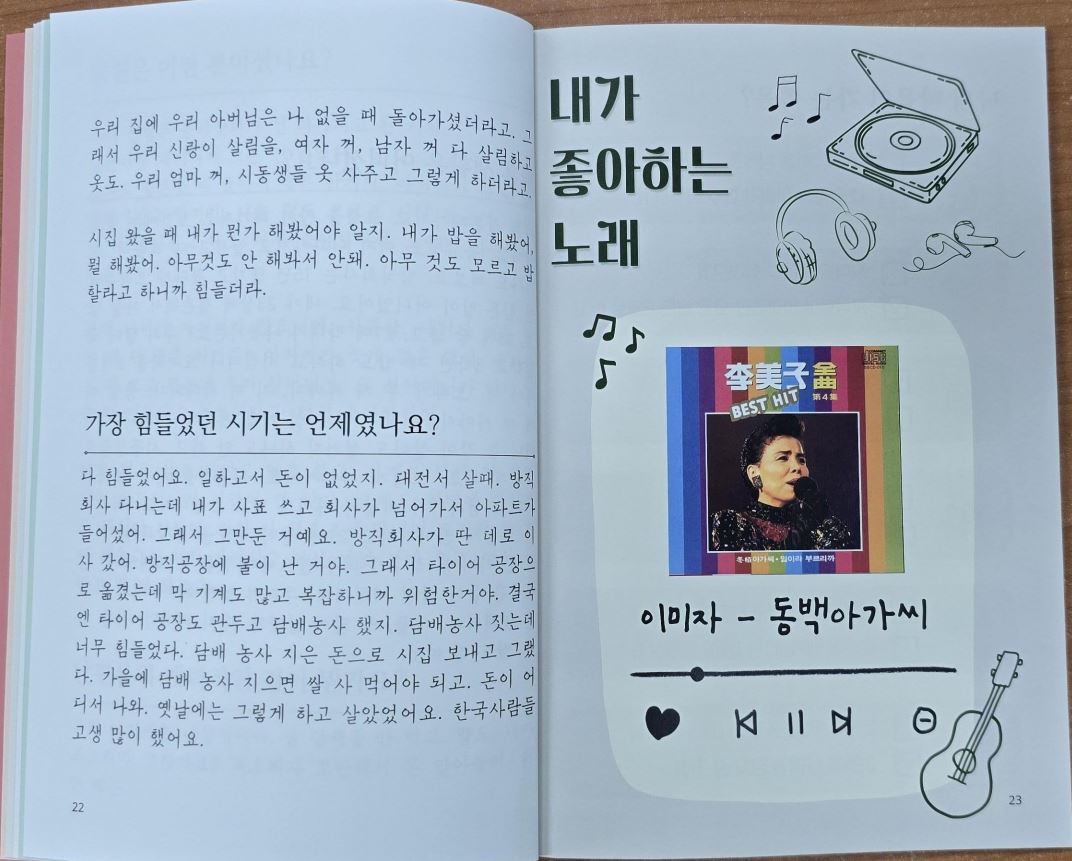 우리 집에 우리 아버님은 나 없을 때 돌아가셨더라고. 그
래서 우리 신랑이 살림을, 여자 꺼, 남자 꺼 다 살림하고
옷도. 우리 엄마 꺼, 시동생들 옷 사주고 그렇게 하더라고.
시집 왔을 때 내가 뭔가 해봤어야 알지. 내가 밥을 해봤어,
뭘 해봤어. 아무것도 안 해봐서 안돼. 아무 것도 모르고 밥
할라고 하니까 힘들더라.
가장 힘들었던 시기는 언제였나요?
다 힘들었어요. 일하고서 돈이 없었지. 대전서 살때. 방직
회사 다니는데 내가 사표 쓰고 회사가 넘어가서 아파트가
들어섰어. 그래서 그만둔 거예요. 방직회사가 딴 데로 이
사 갔어. 방직공장에 불이 난 거야. 그래서 타이어 공장으
로 옮겼는데 막 기계도 많고 복잡하니까 위험한거야. 결국
엔 타이어 공장도 관두고 담배농사 했지. 담배농사 짓는데
너무 힘들었다. 담배 농사 지은 돈으로 시집 보내고 그랬
다. 가을에 담배 농사 지으면 쌀 사 먹어야 되고. 돈이 어
디서 나와. 옛날에는 그렇게 하고 살았었어요. 한국사람들
고생 많이 했어요.
22
내가
좋아하는
노래
李美子 全曲
BEST HIT
第4集
冬栢아가씨•임이라 부르리까
이미자 - 동백아가씨
23